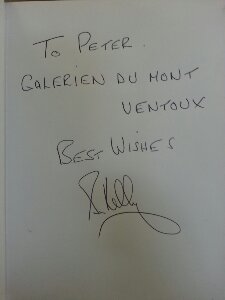 To PETER.
GALERIEN DU MONT
VENTOUX
BEST WISHES
S Kelly